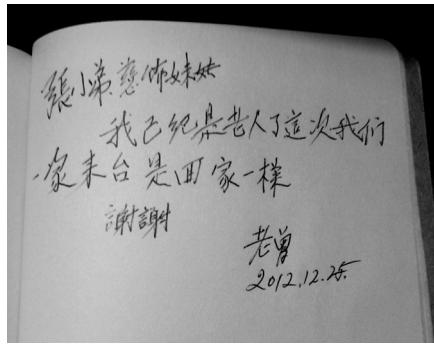 張小弟慈佈妹妹
我己經是老人了這次我们
一家来台是回家一樣
謝謝
老曾
2012.12.25.